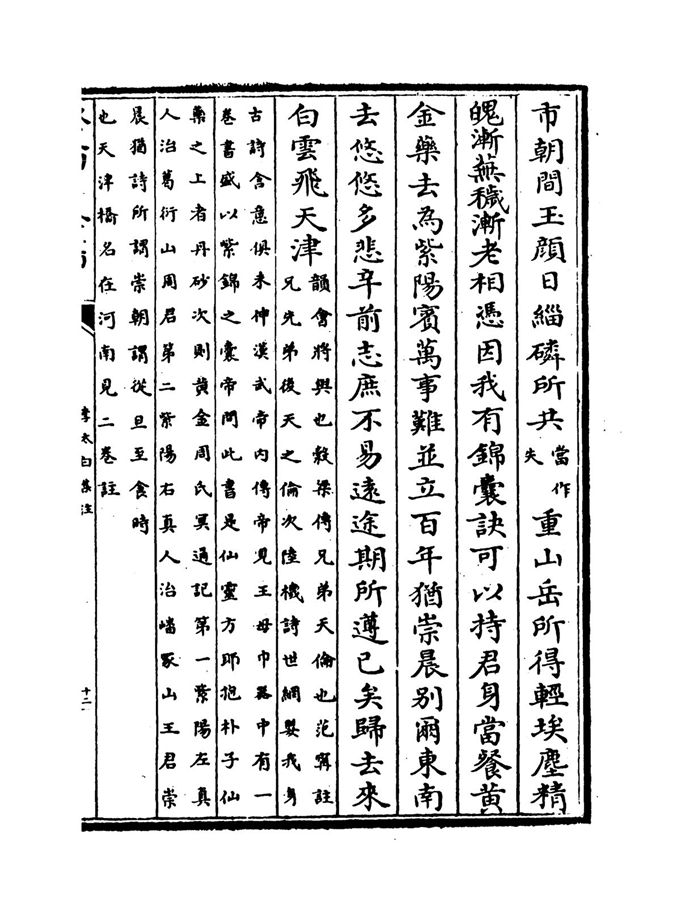 市朝間玉顔日緇磷所共當作失重山岳所得輕埃塵精
魄漸蕪穢漸老相憑因我有錦囊訣可以持君身當餐黄
金藥去為紫陽賔萬事難並立百年猶崇晨别爾東南
去悠悠多悲辛前志庶不易遠途期所遵已矣歸去來
白雲飛天津
韻會將與也穀梁傳兄弟天倫也范寗註
兄先弟後天之倫次陸機詩世網嬰我身
古詩含意俱未伸漢武帝内傳帝見王母巾器中有一
卷書盛以紫錦之囊帝問此書是仙靈方耶抱朴子仙
藥之上者丹砂次則黄金周氏冥通記第一紫陽左真
人治葛衍山周君第二紫陽右真人治嶓冢山王君崇
晨猶詩所謂崇朝謂從旦至食時
也天津橋名在河南見二卷註
李太白集注
十二